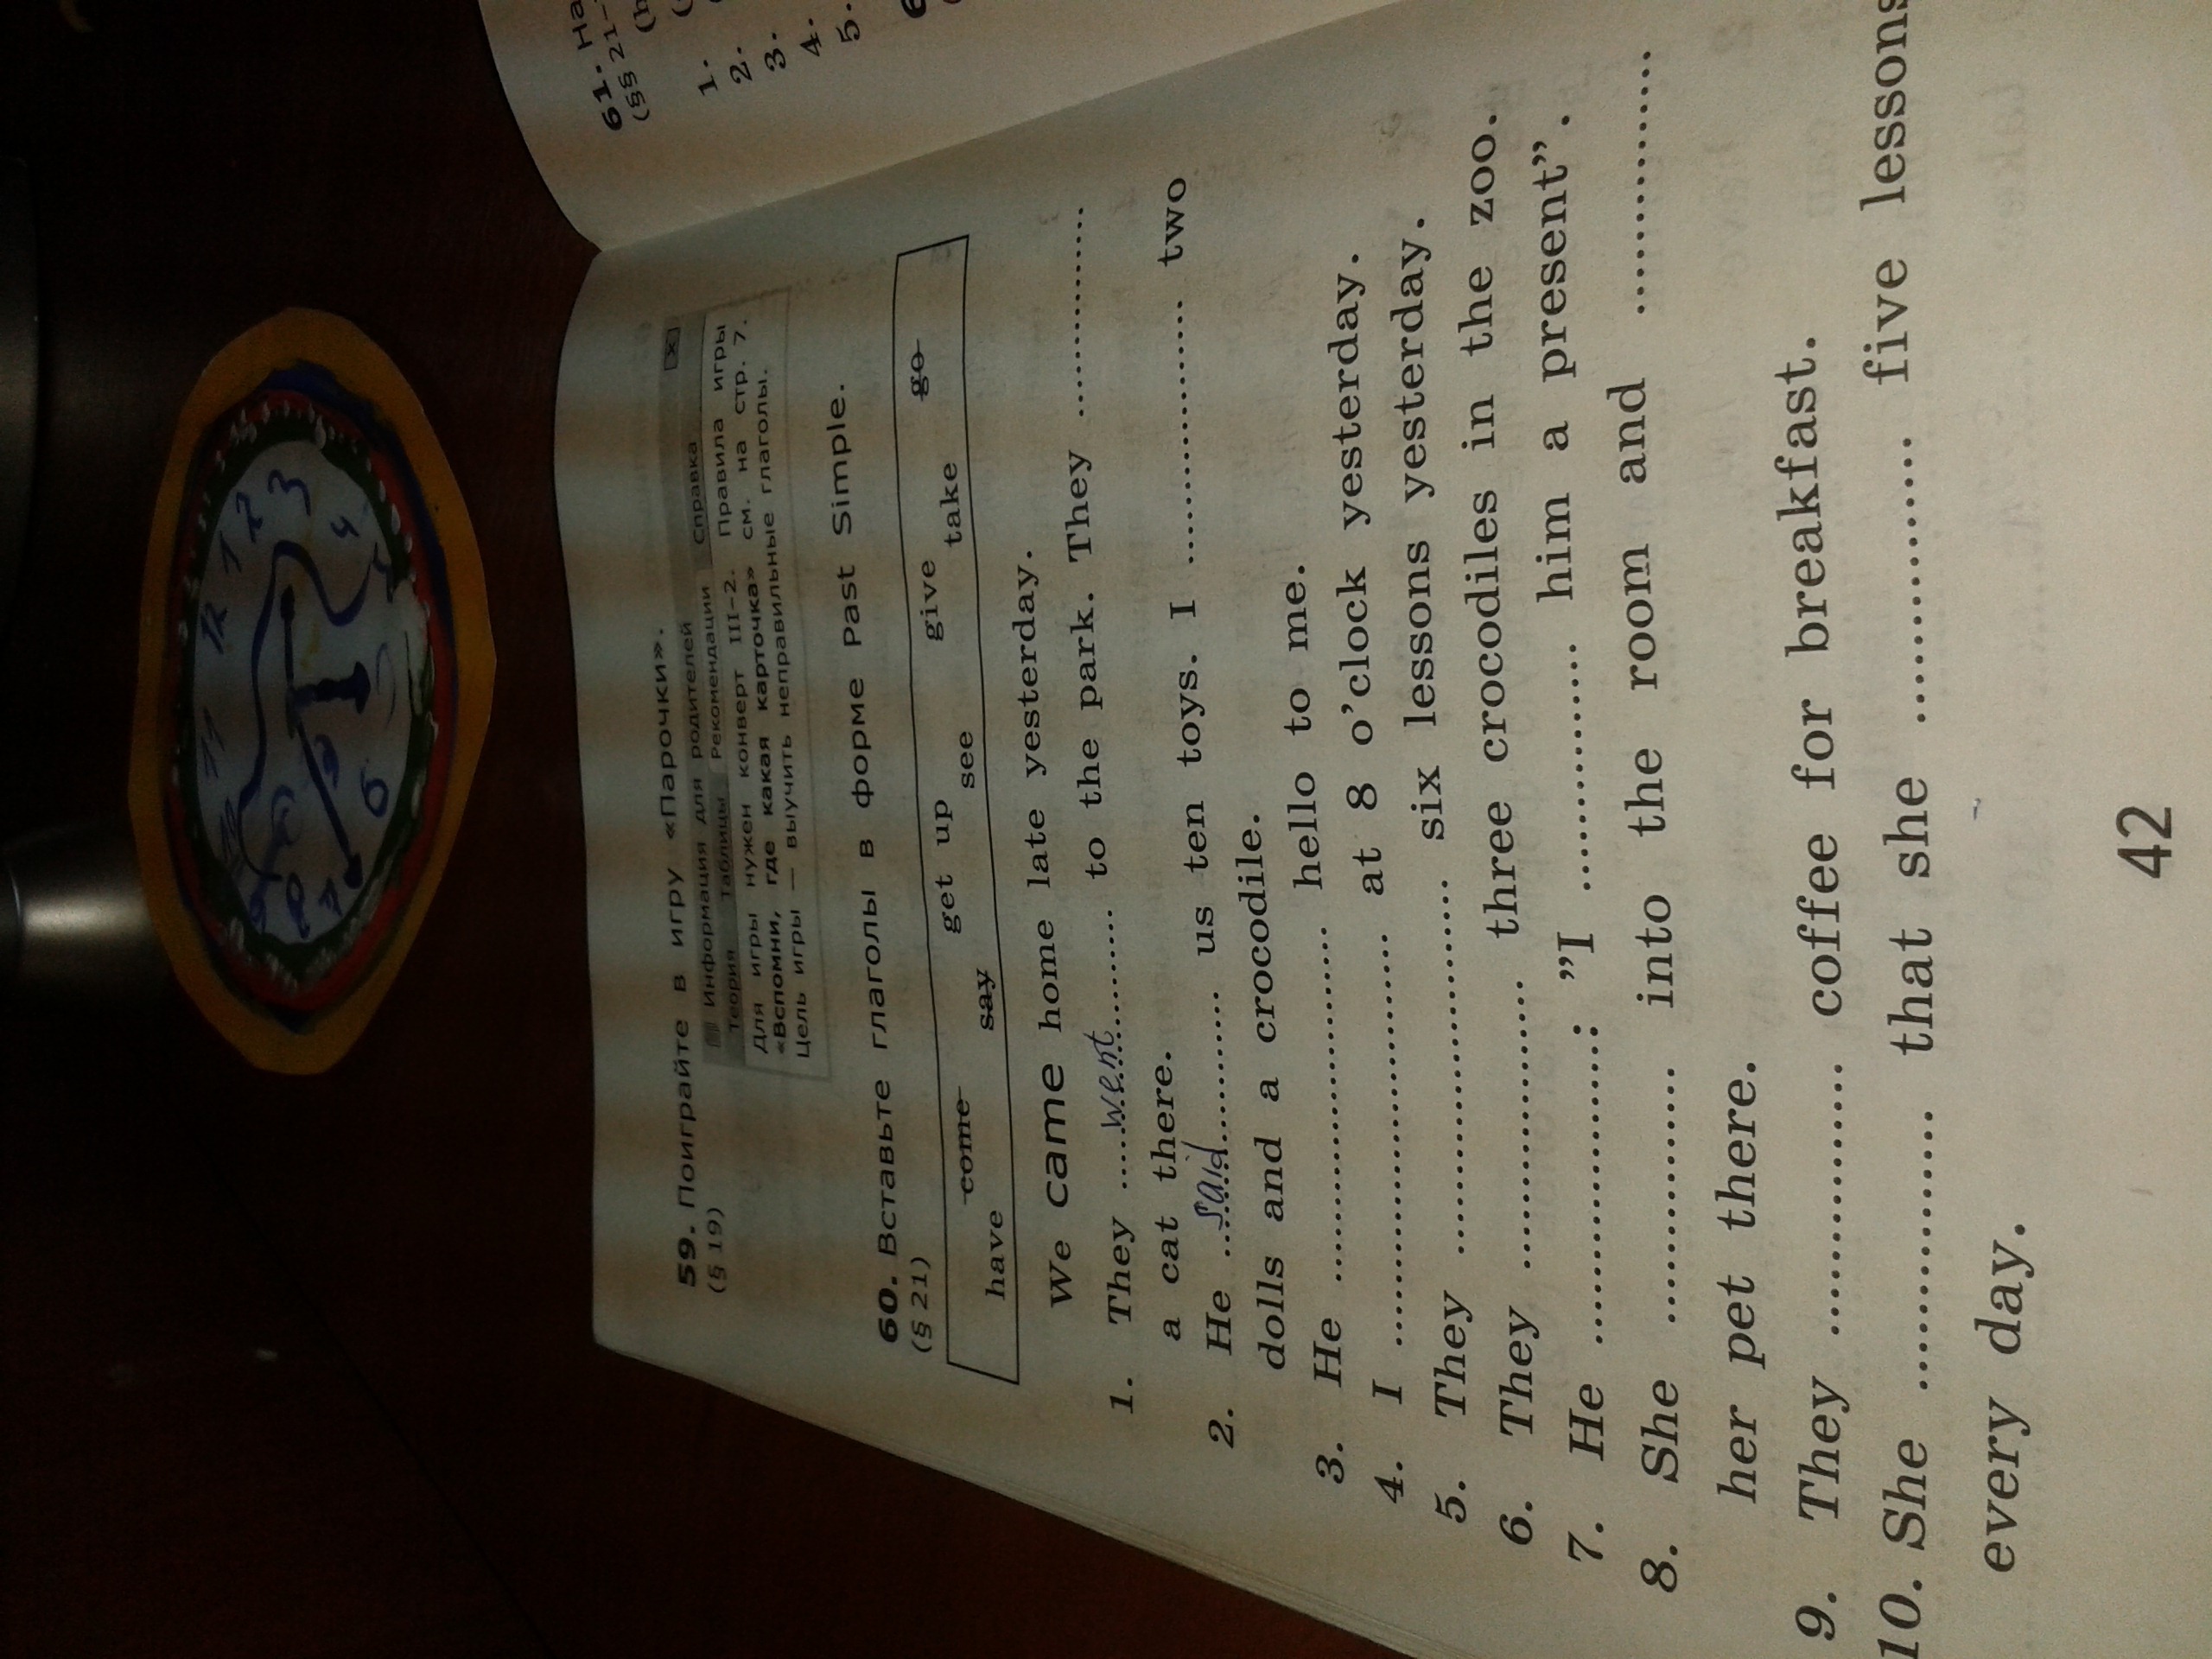 59. Поиграйте в игру «Парочки».
(§ 19)
Информация для родителей
Теория Таблицы Рекомендации Справка
Для игры нужен конверт III–2. Правила игры
«Вспомни, где какая карточка» см. на стр. 7.
Цель игры — выучить неправильные глаголы.
60. Вставьте глаголы в форме Past Simple.
(§ 21)
come get up give go
have say see take
We came home late yesterday.
1. They .....went.......... to the park. They ................
a cat there.
2. He ..said............ us ten toys. I .................... two
dolls and a crocodile.
3. He ........................... hello to me.
4. I ............................... at 8 o'clock yesterday.
5. They ............................ six lessons yesterday.
6. They ..................... three crocodiles in the zoo.
7. He .......................: ”I ................... him a present”.
8. She .................... into the room and ....................
her pet there.
9. They ..................... coffee for breakfast.
10. She ..................... that she ...................... five lessons
every day.
42
61. На
(§§ 21–
1.
2.
3.
4.
5.